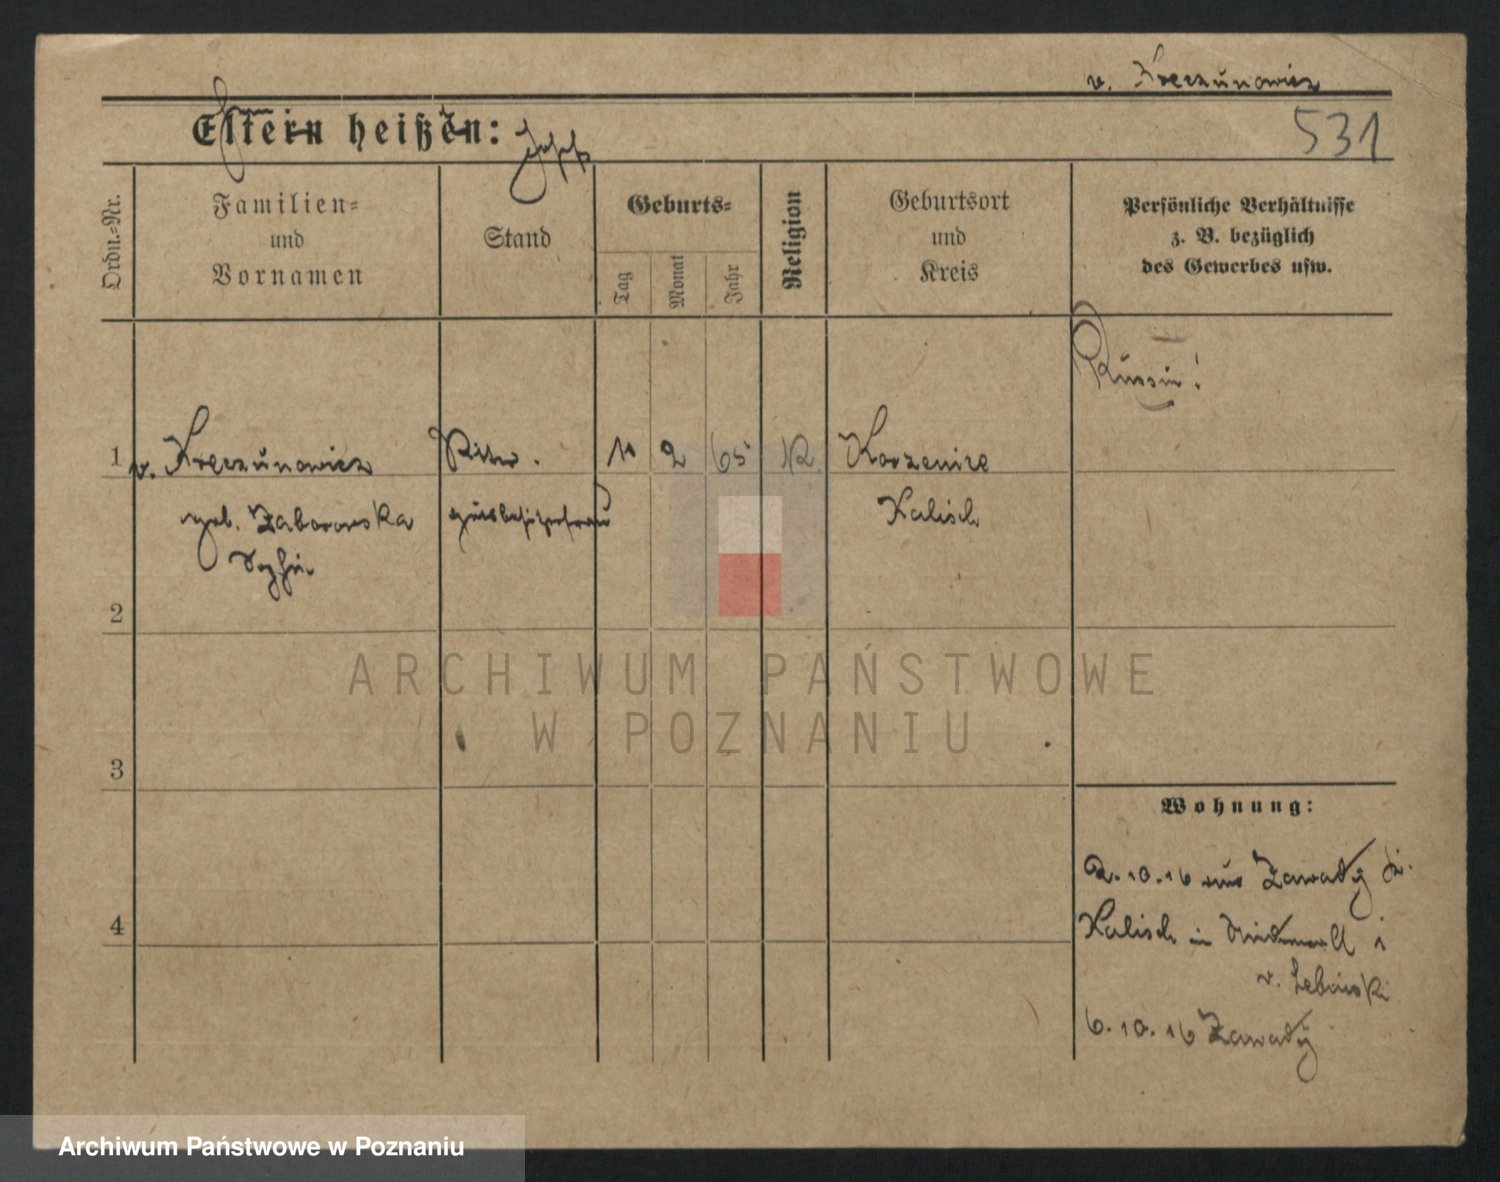 v. Kreczunowicz
Eltern heißen:
531
Ordn.-Nr.
Familien-
und
Vornamen
Stand
Geburts-
Tag
Monat
Jahr
Religion
Geburtsort
und
Kreis
Persönliche Verhältnisse
z. B. bezüglich
des Gewerbes usw.
Russin!
1 v. Kreczunowicz Ritter. 2 65 K Korzenice
geb. Zaborowska gutsbesitzersfrau Kalisch
Sophie
2
ARCHIWUM PAŃSTWOWE
W POZNANIU
3
Wohnung:
2.10.16 aus Zawady
Kalisch in
4
v. Lebinski
6.10.16 Zawady
Archiwum Państwowe w Poznaniu